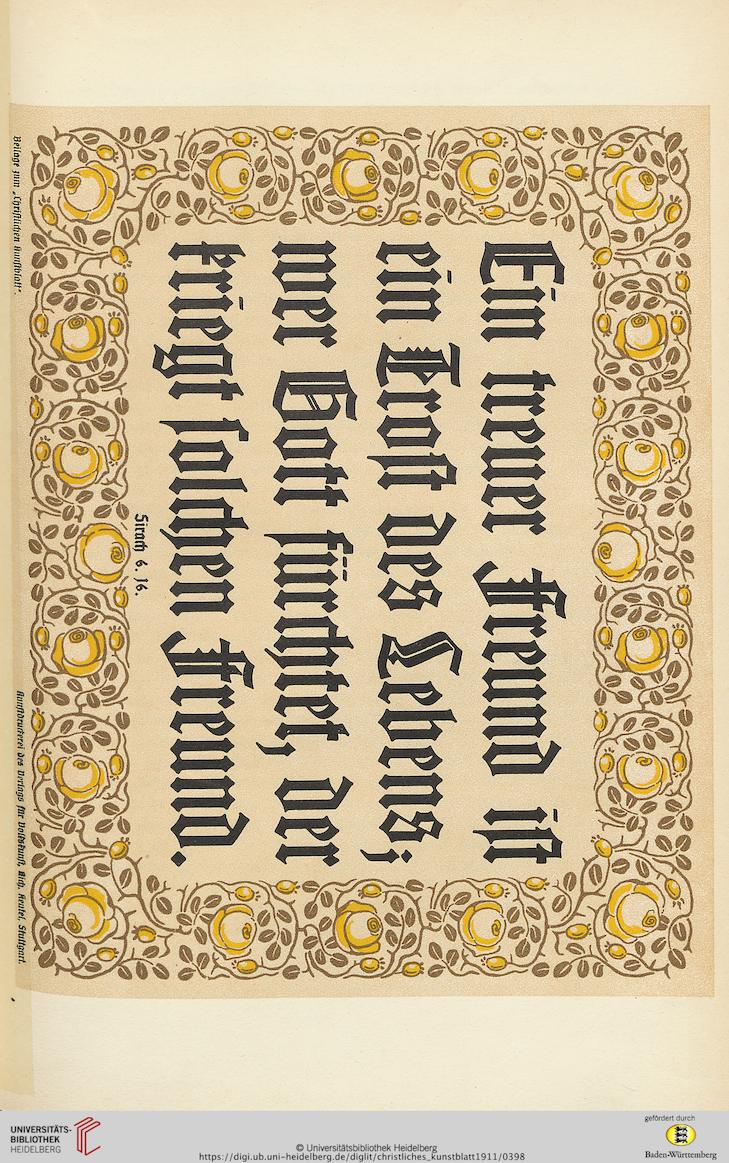 Ein treuer Freund iſt
ein Troſt des Lebens;
wer Gott fürchtet, der
kriegt ſolchen Freund.
Sirach 6. 16.
Beilage zum „Chriſtlichen Kunſtblatt“.
Kunſtdruckerei des Verlags für Volkskunſt, Rich. Keutel, Stuttgart.
UNIVERSITÄTS-
BIBLIOTHEK
HEIDELBERG
© Universitätsbibliothek Heidelberg
https://digi.ub.uni-heidelberg.de/diglit/christliches_kunstblatt1911/0398
gefördert durch
Baden-Württemberg